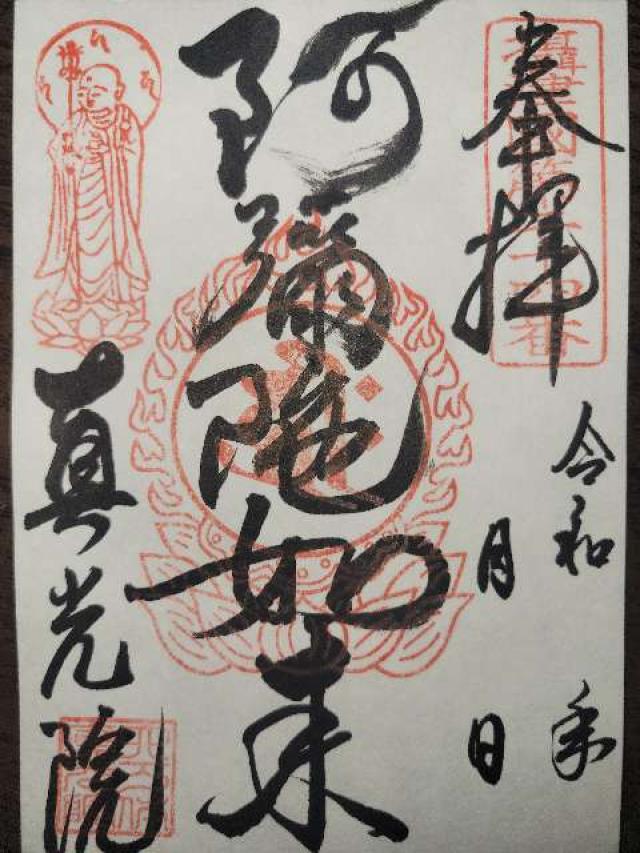 奉拝
令和 年
月 日
阿彌陀如来
真光院